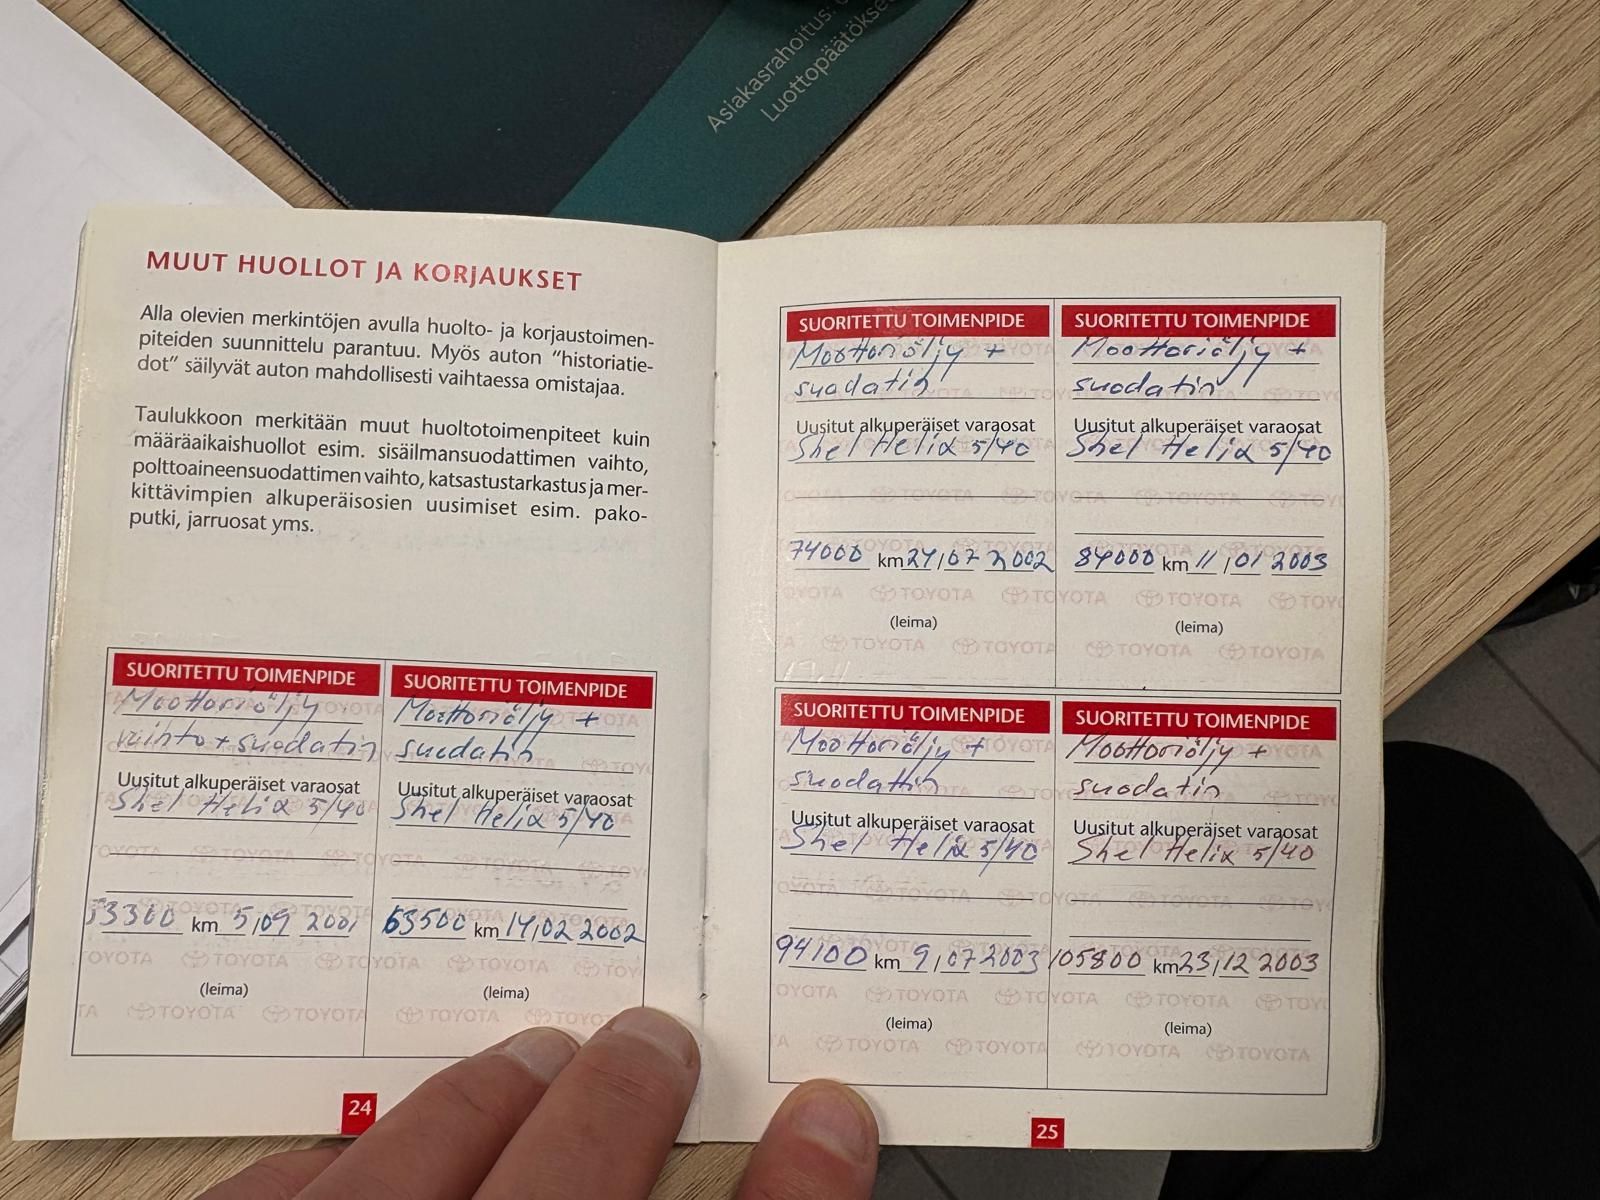 Asiakasrahoitus:
Luottopäätökse
MUUT HUOLLOT JA KORJAUKSET
Alla olevien merkintöjen avulla huolto- ja korjaustoimen-
piteiden suunnittelu parantuu. Myös auton "historiatie-
dot" säilyvät auton mahdollisesti vaihtaessa omistajaa.
Taulukkoon merkitään muut huoltotoimenpiteet kuin
määräaikaishuollot esim. sisäilmansuodattimen vaihto,
polttoaineensuodattimen vaihto, katsastustarkastus ja mer-
kittävimpien alkuperäisosien uusimiset esim. pako-
putki, jarruosat yms.
SUORITETTU TOIMENPIDE
Moottoriöljy
vaihto + suodatin
Uusitut alkuperäiset varaosat
Shel Helix 5/40
53300 km 5,09 2001
(leima)
SUORITETTU TOIMENPIDE
Moottoriöljy +
suodatin
Uusitut alkuperäiset varaosat
Shel Helix 5/40
63500 km 14,02 2002
(leima)
24
SUORITETTU TOIMENPIDE
Moottoriöljy +
suodatin
Uusitut alkuperäiset varaosat
Shel Helix 5/40
74000 km 24,07 2002
(leima)
SUORITETTU TOIMENPIDE
Moottoriöljy +
suodatin
Uusitut alkuperäiset varaosat
Shel Helix 5/40
84000 km 11,01 2003
(leima)
SUORITETTU TOIMENPIDE
Moottoriöljy +
suodattin
Uusitut alkuperäiset varaosat
Shel Helix 5/40
94100 km 9,07 2003
(leima)
SUORITETTU TOIMENPIDE
Moottoriöljy +
suodatin
Uusitut alkuperäiset varaosat
Shel Helix 5/40
105800 km 23,12 2003
(leima)
25